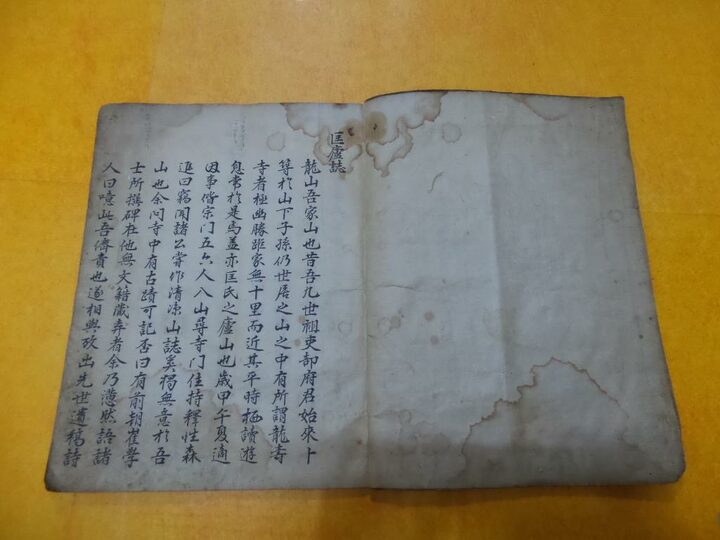 匡廬誌
龍山吾家山也昔吾九世祖吏部府君始來卜
築於山下子孫仍世居之山之中有所謂龍壽
寺者極幽勝距家無十里而近其平時栖讀遊
息常於是焉盖亦匡氏之廬山也歲甲午夏適
因事偕宗門五六人入山尋寺門住持釋性森
迎曰竊聞諸公嘗作清凉山誌奚獨無意於吾
山也余問寺中有古蹟可記否曰有前朝崔學
士所撰碑在他無文籍藏弆者余乃慨然語諸
人曰噫此吾儕責也遂相與攷出先世遺稿詩